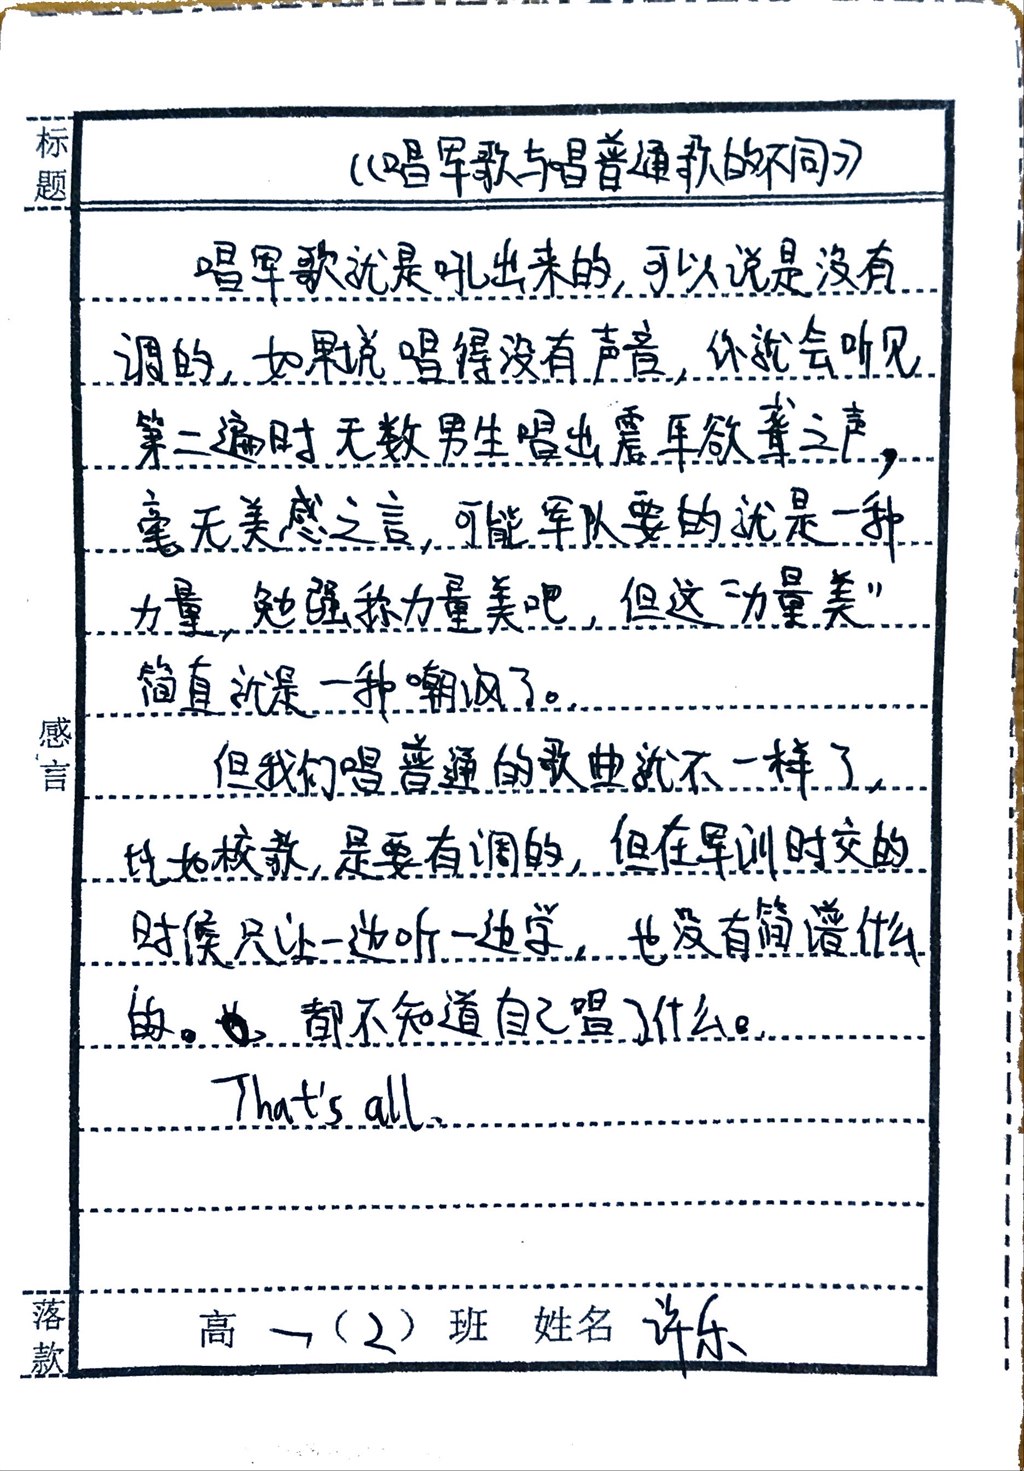 标题
《唱军歌与唱普通歌的不同》
唱军歌就是吼出来的,可以说是没有
调的,如果说唱得没有声音,你就会听见
第二遍时无数男生唱出震耳欲聋之声,
毫无美感之言,可能军队要的就是一种
力量,勉强称力量美吧,但这“力量美”
简直就是一种嘲讽了。
感言
但我们唱普通的歌曲就不一样了,
比如校歌,是要有调的,但在军训时交的
时候只让一边听一边学,也没有简谱什么
的。都不知道自己唱了什么。
That's all.
落款
高一(2)班 姓名 许乐